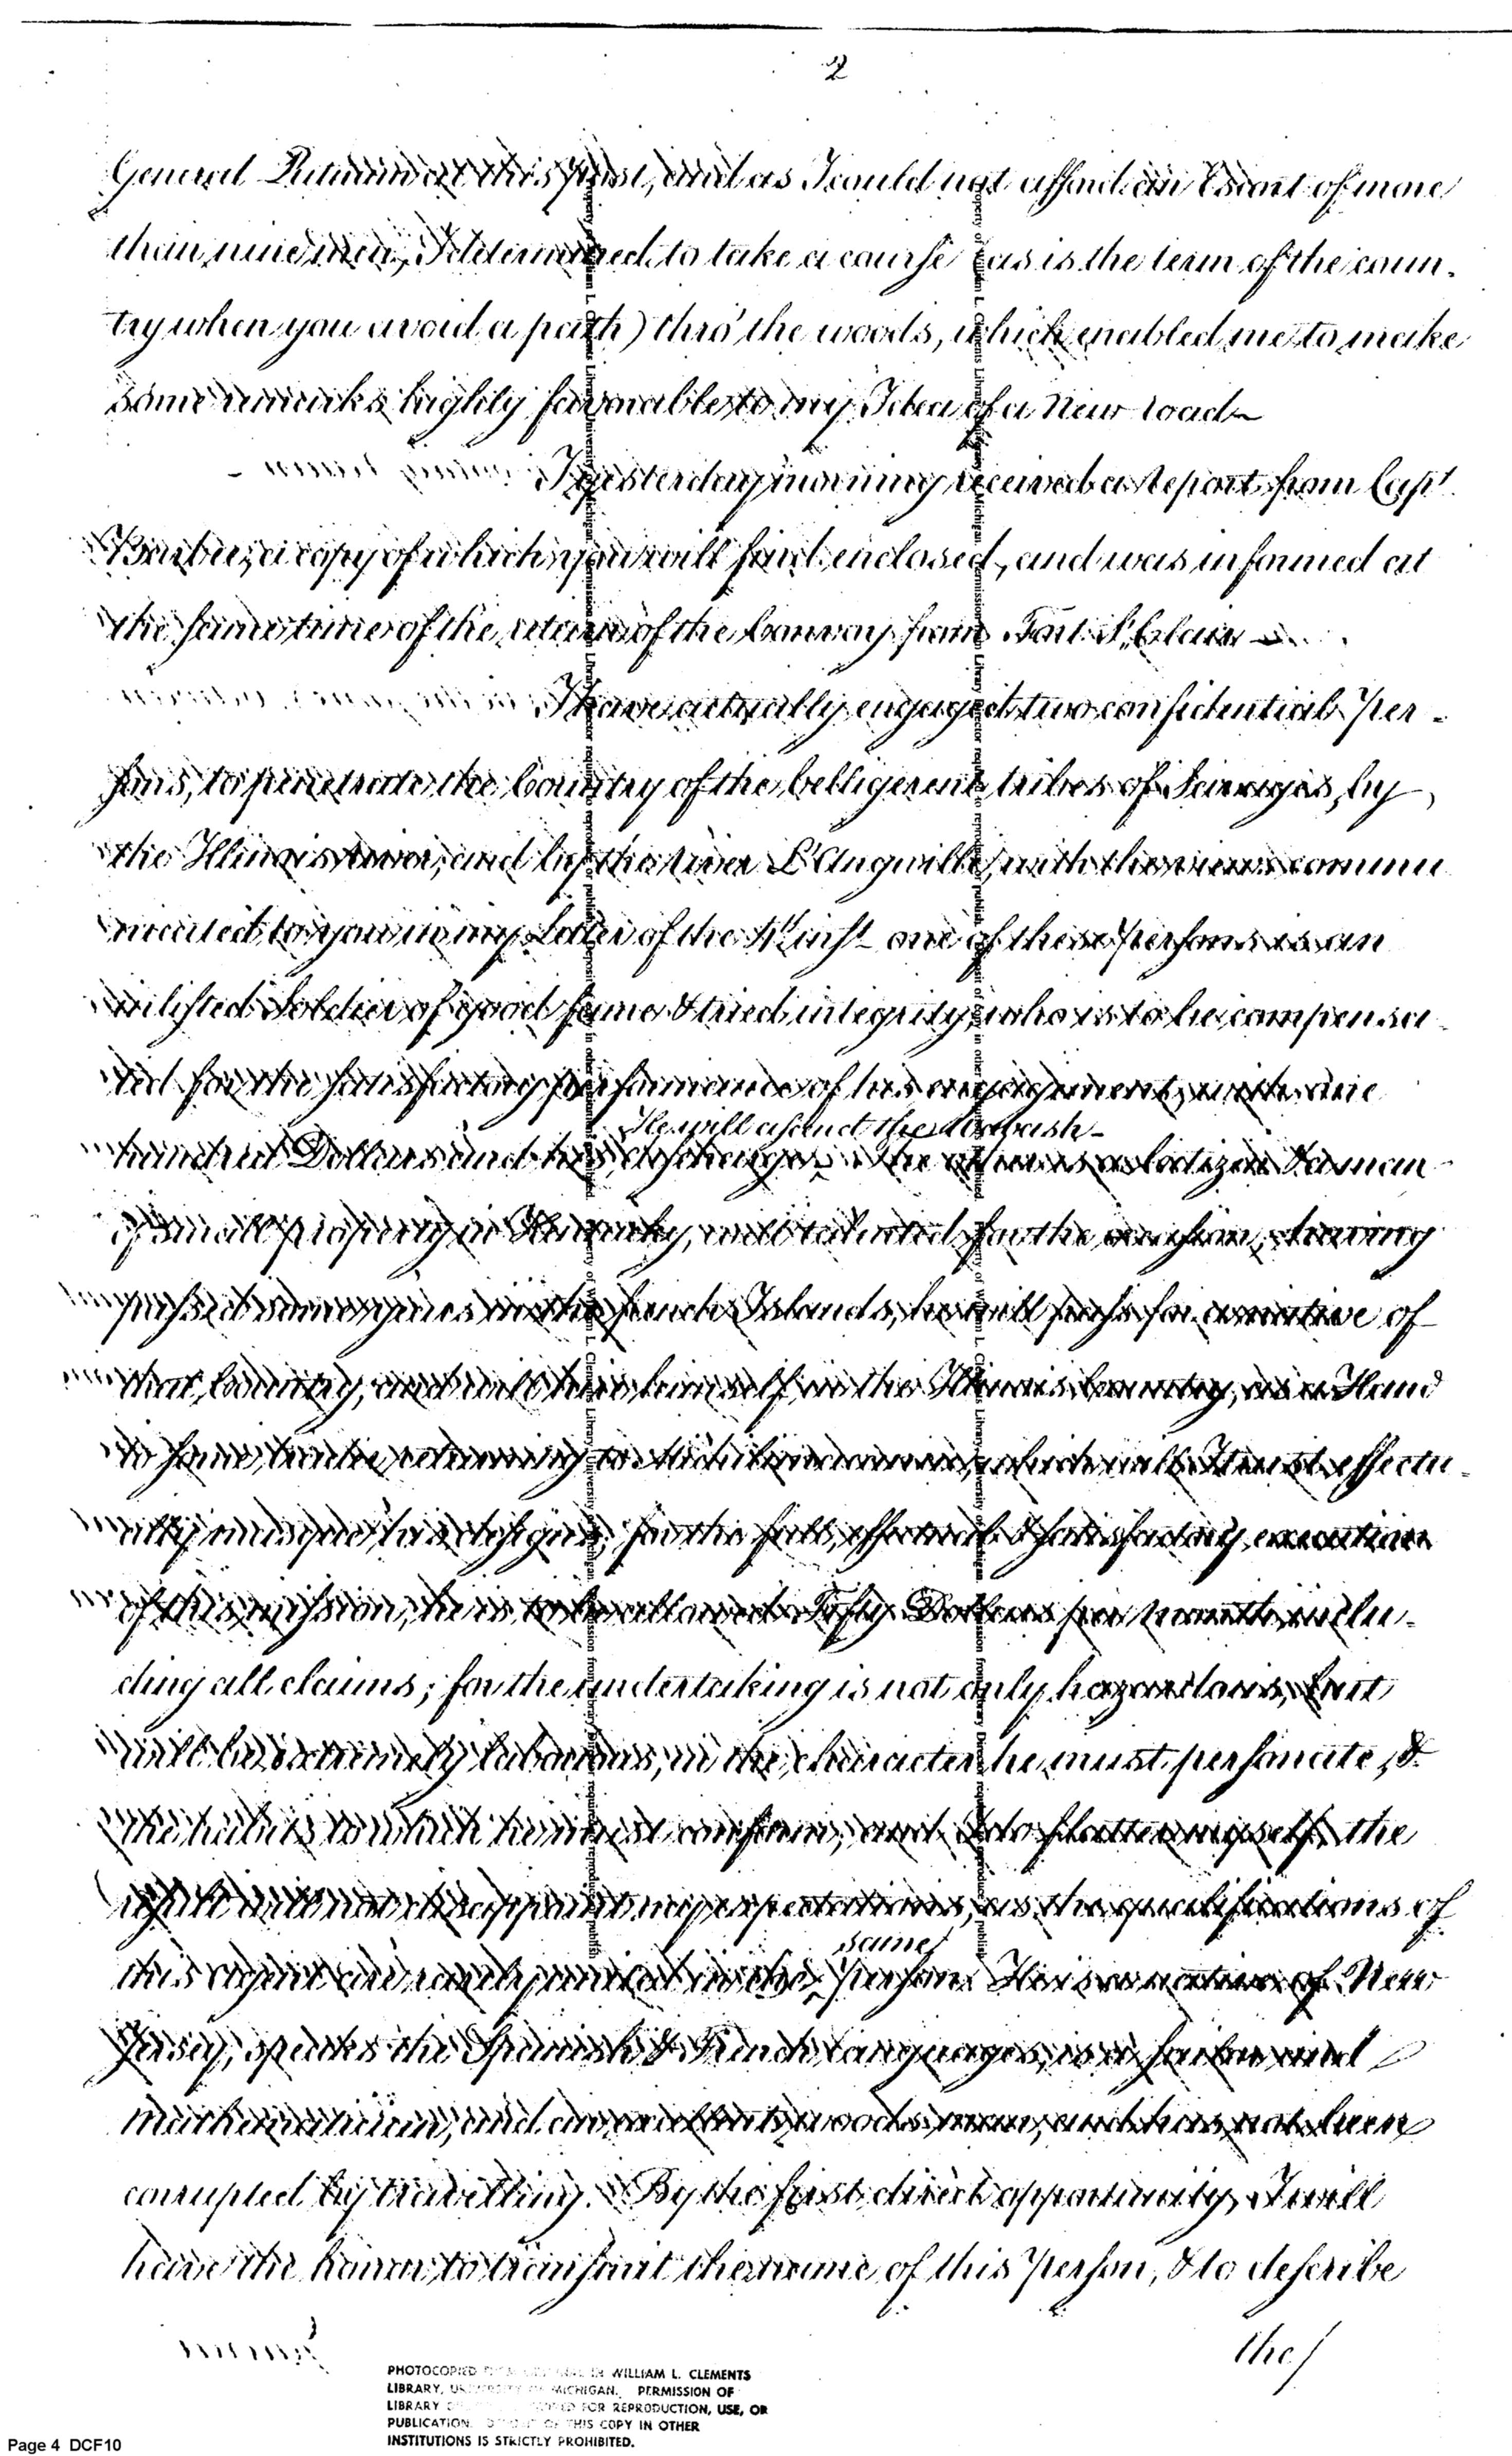 2
General Putnam at this post, and as I could not afford an Escort of more
than nine men, I determined to take a course (as is the term of the coun-
try when you avoid a path) thro' the woods, which enabled me to make
some remarks highly favorable to my Idea of a New road
I yesterday morning received a Report from Capt
Barbee, a copy of which you will find enclosed, and was informed at
the same time of the return of the Convoy from Fort St Clair
I have actually engaged two confidential Per-
sons, to penetrate the Country of the belligerent tribes of Savages, by
the Illinois river, and by the river L'Anguille, with the views commu
nicated to you in my Letter of the inst one of these Persons is an
inlisted Soldier of good fame & tried integrity, who is to be compensa-
ted for the satisfactory performance of his engagement, with one
He will ascend the Wabash-
hundred Dollars and his discharge. The other is a Citizen & a man
of small property in Kentucky, well talented for the occasion, having
passed some years in the french Islands, he will pass for a native of
that Country, and will hire himself in the Illinois Country, as a Hand
to some trader returning to Michilimackinac, which will I trust effectu-
ally masque his designs; for the full, effectual & satisfactory execution
of this mission, he is to be allowed Fifty Dollars per month, inclu-
ding all claims; for the undertaking is not only hazardous, but
will be extremely laborous, in the character he must personate, &
the habits to which he must conform, and I do flatter myself, the
result will not disappoint my expectations, as the qualifications of
same
this agent are rarely united in the Person. He is a native of New
Jersey, speaks the Spanish & French languages, is a sailor and
mathematician, and an excellent woodsman, and has not been
corrupted by travelling. By the first direct opportunity, I will
have the honor to transmit the name of this Person, & to describe
the
PHOTOCOPIED IN WILLIAM L. CLEMENTS
LIBRARY, UNIVERSITY OF MICHIGAN. PERMISSION OF
LIBRARY FOR REPRODUCTION, USE, OR
PUBLICATION. OF THIS COPY IN OTHER
INSTITUTIONS IS STRICTLY PROHIBITED.
Page 4 DCF10